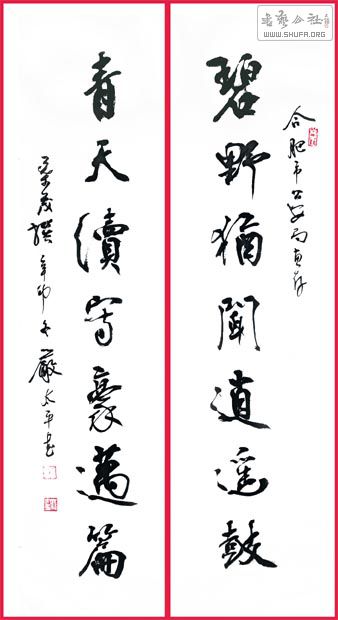 書藝公社
WWW.SHUFA.ORG
合肥市公安局惠存
碧野猶聞逍遥鼓
青天續寫豪邁篇
撰 辛卯冬 嚴太平書